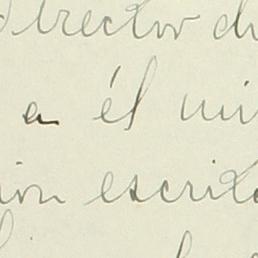 director d
a él mi
ión escrit